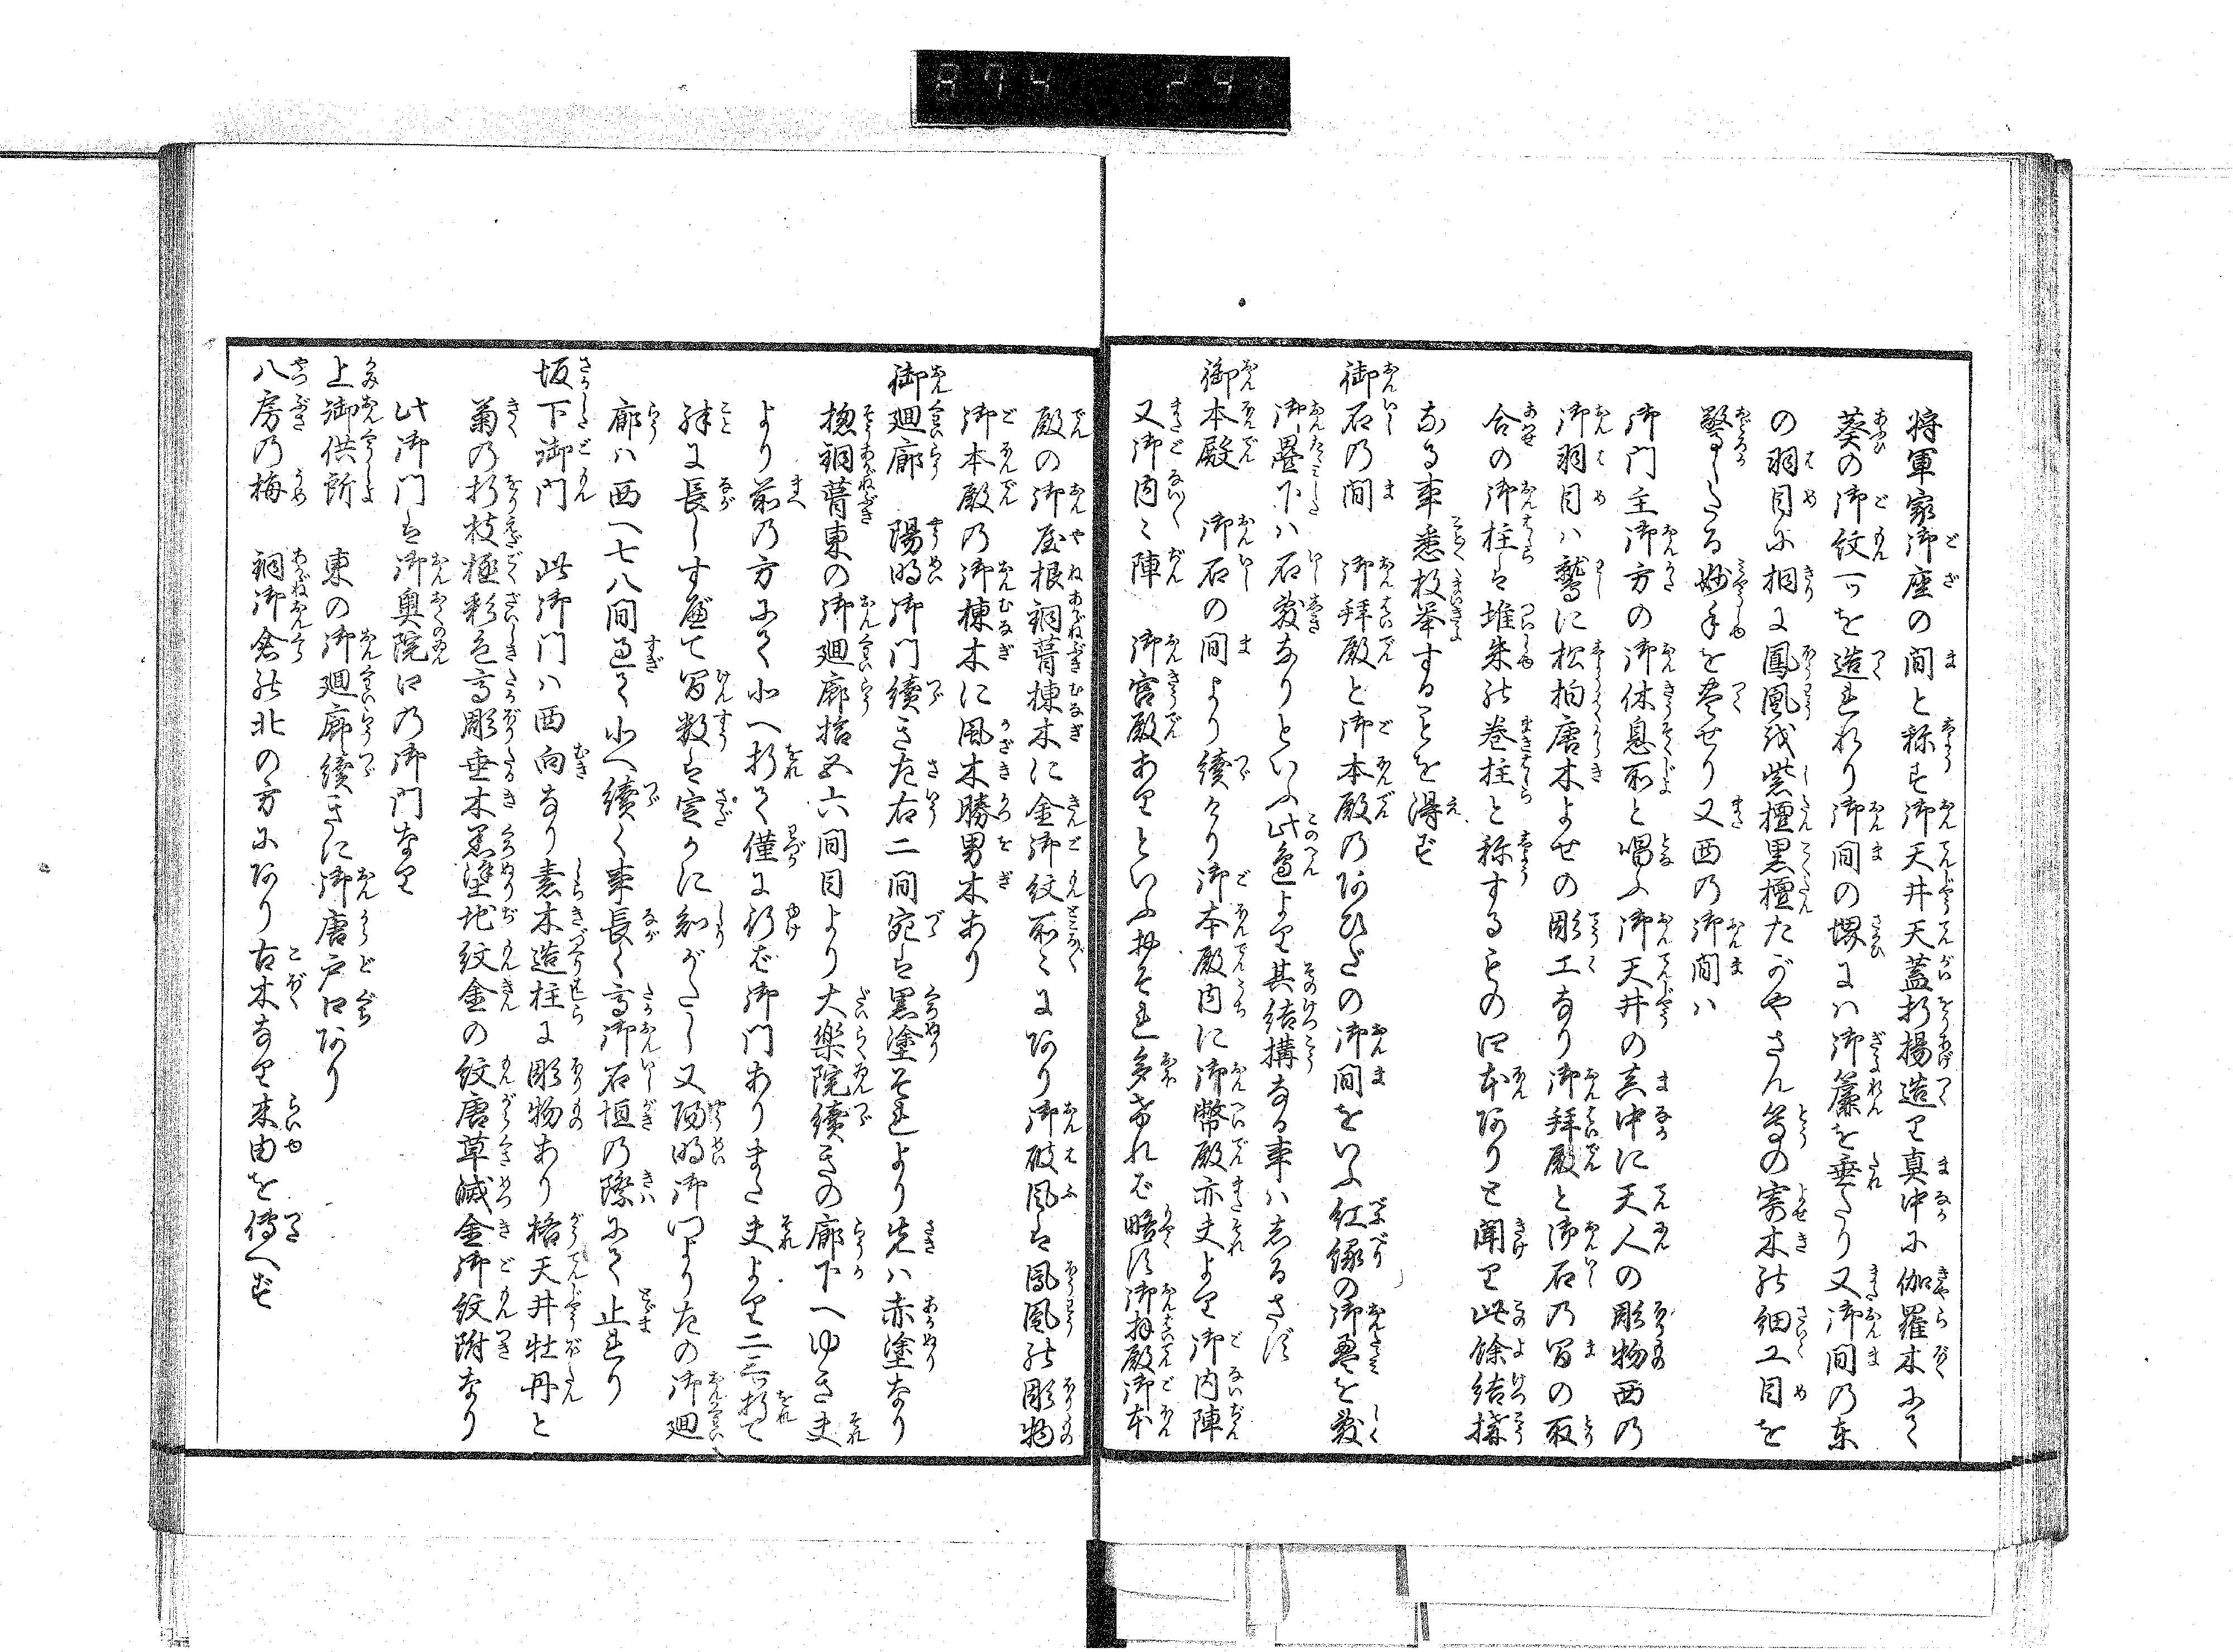 将軍家御座の間と称す御天井天蓋折揚造り真中に伽羅木にて
葵の御紋一ツを造れり御間の堺には御簾を垂たり又御間の東
の羽目に桐に鳳凰を紫檀黒檀たがやさん等の寄木の細工目を
驚したる妙手を尽せり又西の御間は
御門主御方の御休息所と唱ふ御天井の真中に天人の彫物西の
御羽目は鷲に松柏唐木よせの彫工なり御拝殿と御石の間の取
合の御柱は堆朱の巻柱と称するもの四本ありと聞り此余結構
なる事悉枚挙することを得ず
御石の間 御拝殿と御本殿のあひだの御間をいふ紅縁の御畳を敷
御畳下は石敷なりといふ此辺より其結構なる事はしるさず
御本殿 御石の間より続けり御本殿内に御幣殿亦夫より御内陣
又御内々陣 御宮殿ありといふ抄それ多ければ略す御拝殿御本
殿の御屋根銅葺棟木に金御紋所々にあり御破風は鳳凰の彫物
御本殿の御棟木に風木勝男木あり
御廻廊 陽明御門続き左右二間宛は黒塗それより先は赤塗なり
惣銅葺東の御廻廊拾五六間目より大楽院続きの廊下へゆき夫
より前の方にて北へ折て僅に行ば御門ありまた夫より二三折て
殊に長しすべて間数は定かに知がたし又陽明御門より左の御廻
廊は西へ七八間過て北へ続く事長く高御石垣の際にて止れり
坂下御門 此御門は西向なり素木造柱に彫物あり格天井牡丹と
菊の折枝極彩色高彫垂木黒塗地紋金の紋唐草滅金御紋附なり
此御門は御奥院口の御門なり
上御供所 東の御廻廊続きに御唐戸口あり
八房の梅 銅御倉の北の方にあり古木なり来由を伝へず